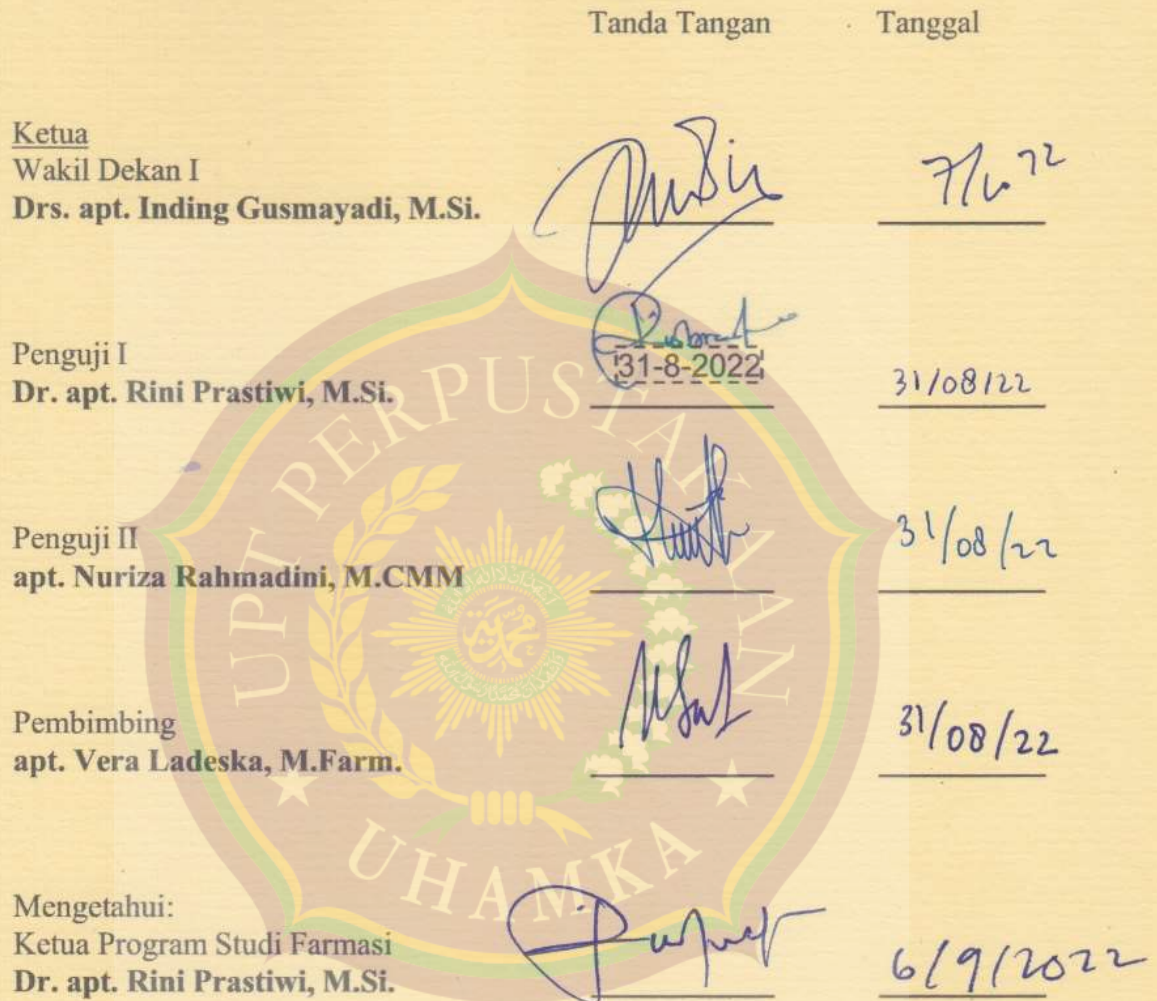 Tanda Tangan Tanggal
Ketua
Wakil Dekan I
Drs. apt. Inding Gusmayadi, M.Si.
31-8-2022
Penguji I
Dr. apt. Rini Prastiwi, M.Si. 31/08/22
Penguji II
apt. Nuriza Rahmadini, M.CMM 31/08/22
Pembimbing
apt. Vera Ladeska, M.Farm. 31/08/22
Mengetahui:
Ketua Program Studi Farmasi
Dr. apt. Rini Prastiwi, M.Si. 6/9/2022
UPT PERPUSTAKAAN
UHAMKA